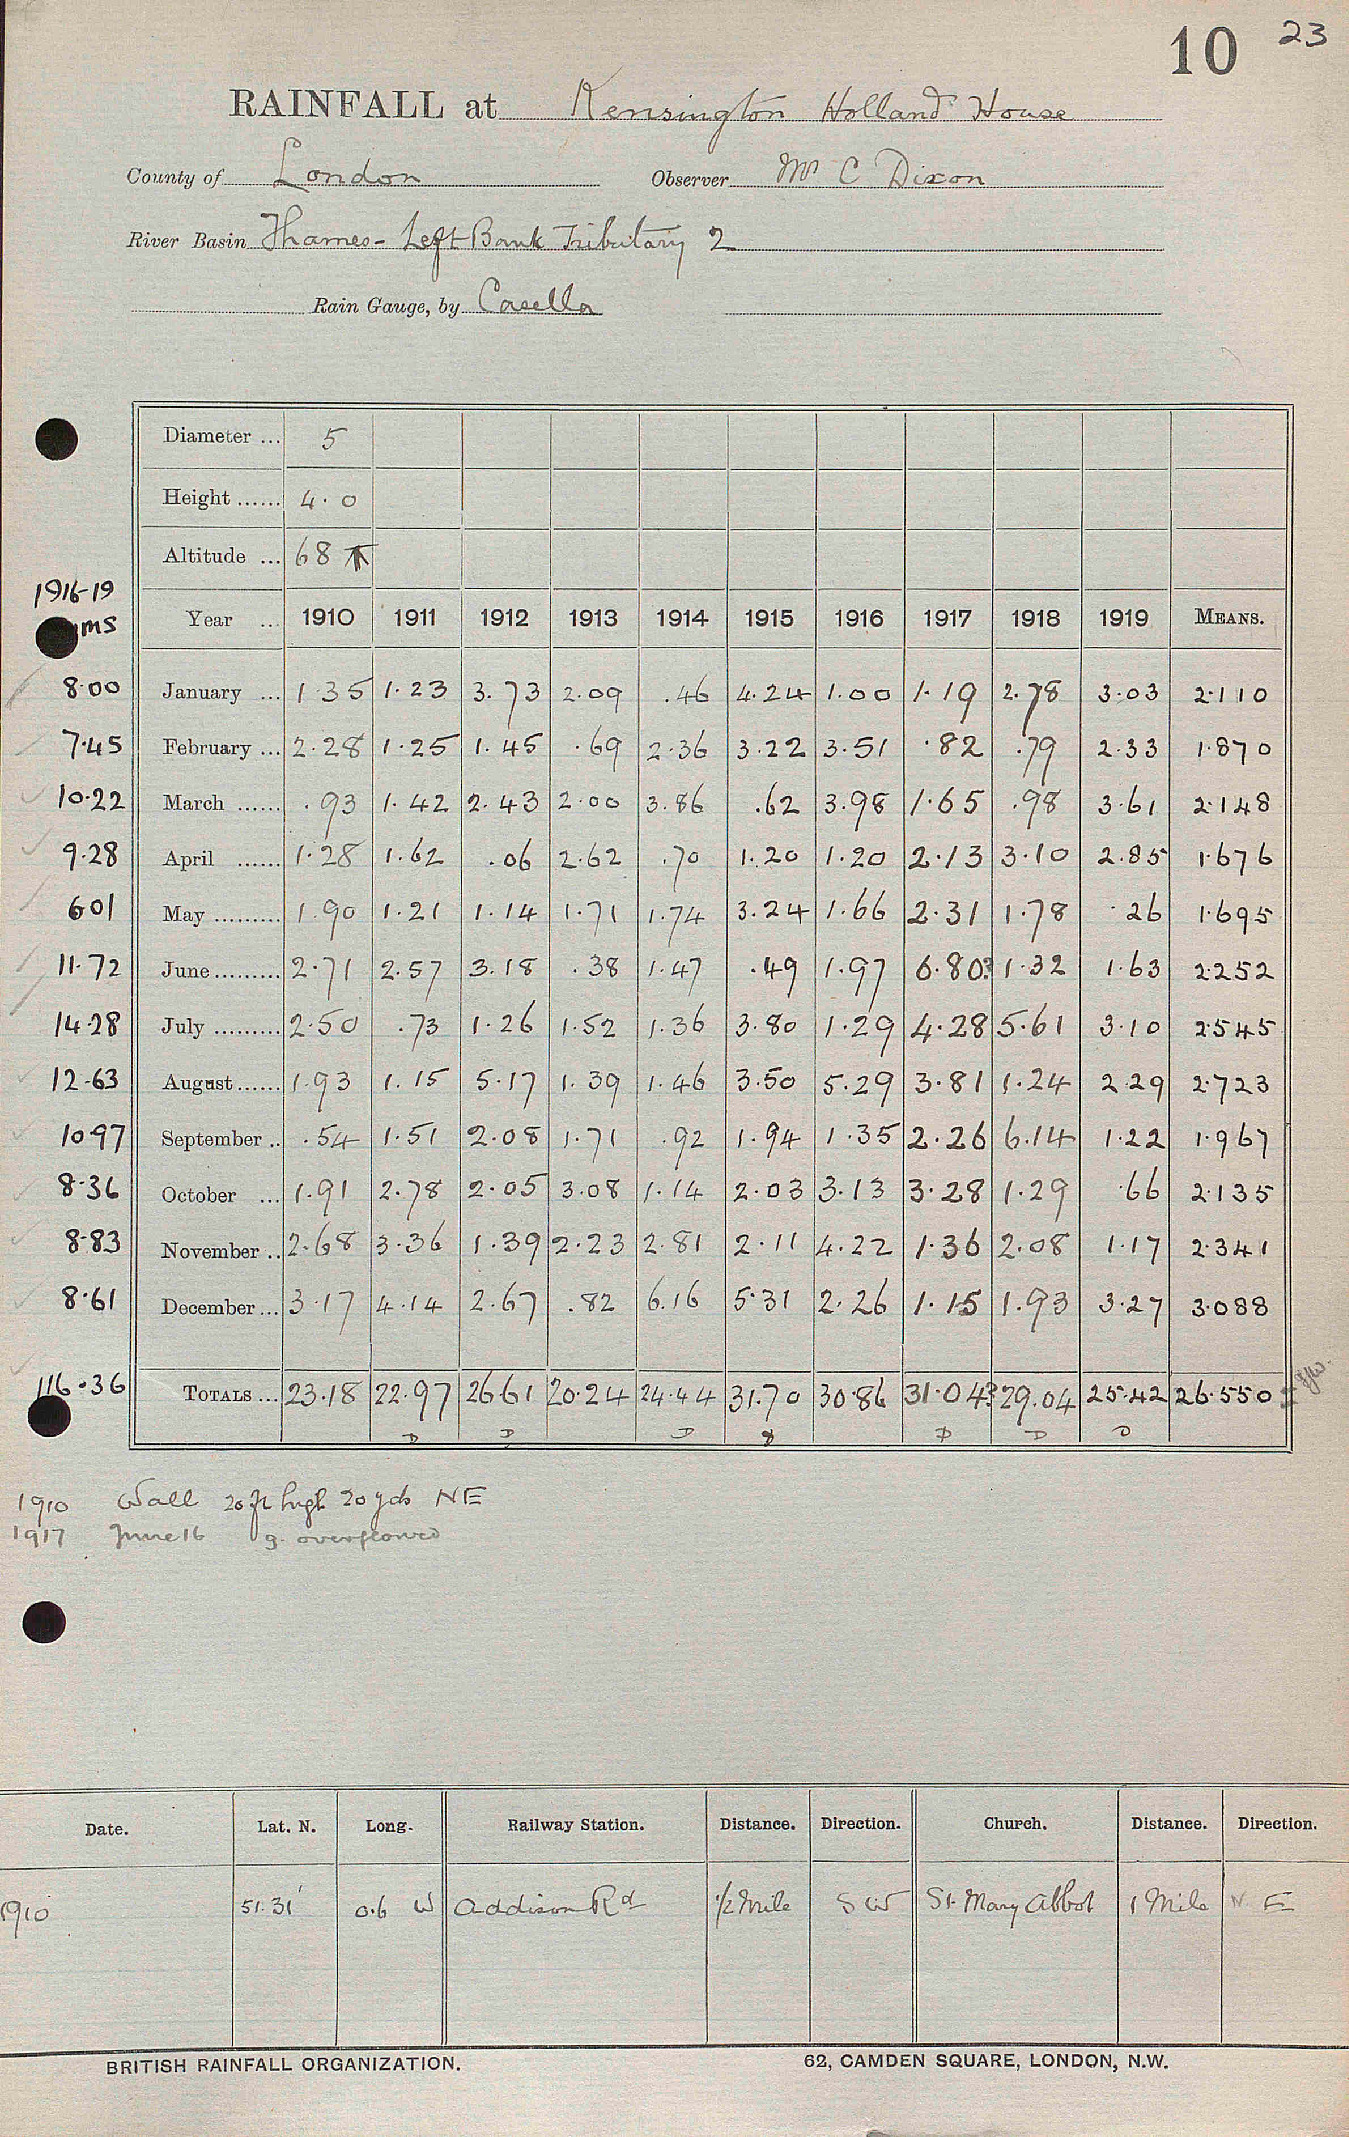 10 23
RAINFALL at Kensington Holland House
County of London Observer Mr C Dixon
River Basin Thames - Left Bank Tributary 2
Rain Gauge, by Casella
Diameter ... 5
Height ...... 4.0
Altitude ... 68 T
1916-19
ms
Year ... 1910 1911 1912 1913 1914 1915 1916 1917 1918 1919 MEANS.
8.00 January ... 1.35 1.23 3.73 2.09 .46 4.24 1.00 1.19 2.78 3.03 2.110
7.45 February ... 2.28 1.25 1.45 .69 2.36 3.22 3.51 .82 .79 2.33 1.870
10.22 March ...... .93 1.42 2.43 2.00 3.86 .62 3.98 1.65 .98 3.61 2.148
9.28 April ...... 1.28 1.62 .06 2.62 .70 1.20 1.20 2.13 3.10 2.85 1.676
6.01 May ......... 1.90 1.21 1.14 1.71 1.74 3.24 1.66 2.31 1.78 .26 1.695
11.72 June ......... 2.71 2.57 3.18 .38 1.47 .49 1.97 6.80? 1.32 1.63 2.252
14.28 July ......... 2.50 .73 1.26 1.52 1.36 3.80 1.29 4.28 5.61 3.10 2.545
12.63 August ...... 1.93 1.15 5.17 1.39 1.46 3.50 5.29 3.81 1.24 2.29 2.723
10.97 September .. .54 1.51 2.08 1.71 .92 1.94 1.35 2.26 6.14 1.22 1.967
8.36 October ... 1.91 2.78 2.05 3.08 1.14 2.03 3.13 3.28 1.29 .66 2.135
8.83 November .. 2.68 3.36 1.39 2.23 2.81 2.11 4.22 1.36 2.08 1.17 2.341
8.61 December ... 3.17 4.14 2.67 .82 6.16 5.31 2.26 1.15 1.93 3.27 3.088
116.36 TOTALS ... 23.18 22.97 26.61 20.24 24.44 31.70 30.86 31.04? 29.04 25.42 26.550
D D D D D D
1910 Wall 20 ft high 20 yds NE
1917 June 16 g. overflowed
Date. Lat. N. Long. Railway Station. Distance. Direction. Church. Distance. Direction.
1910 51.31' 0.6 W Addison Rd 1/2 Mile S W St Mary Abbot 1 Mile N E
BRITISH RAINFALL ORGANIZATION. 62, CAMDEN SQUARE, LONDON, N.W.